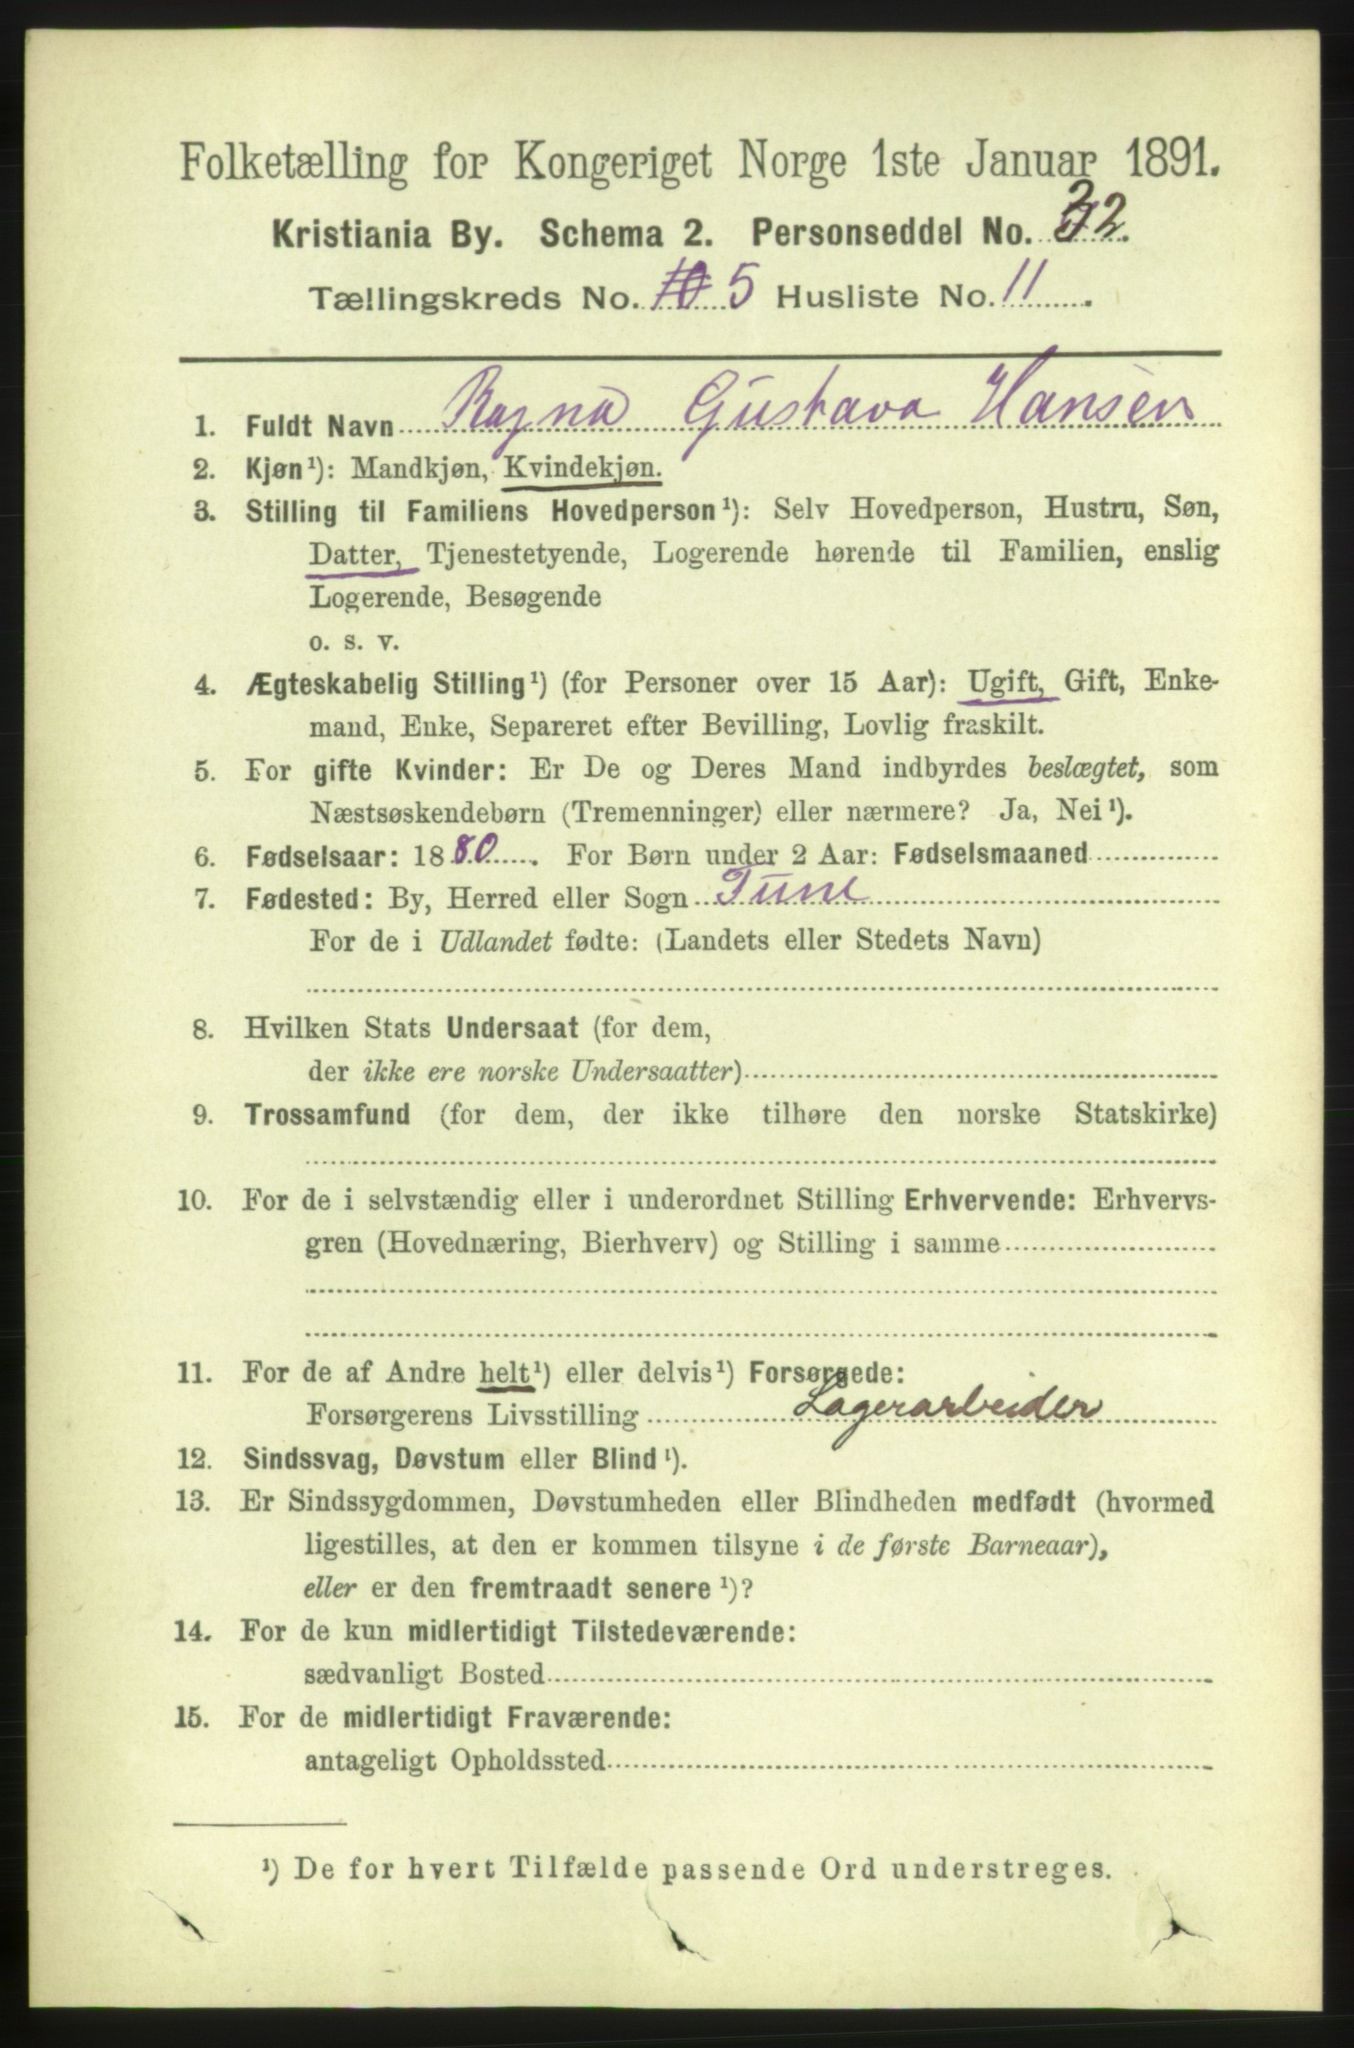 Folketælling for Kongeriget Norge 1ste Januar 1891.
Kristiania By. Schema 2. Personseddel No. 32.
Tællingskreds No. 10 5 Husliste No. 11.
1. Fuldt Navn Ragna Gustava Hansen
2. Kjøn¹): Mandkjøn, Kvindekjøn.
3. Stilling til Familiens Hovedperson¹): Selv Hovedperson, Hustru, Søn,
Datter, Tjenestetyende, Logerende hørende til Familien, enslig
Logerende, Besøgende
o. s. v.
4. Ægteskabelig Stilling¹) (for Personer over 15 Aar): Ugift, Gift, Enke-
mand, Enke, Separeret efter Bevilling, Lovlig fraskilt.
5. For gifte Kvinder: Er De og Deres Mand indbyrdes beslægtet, som
Næstsøskendebørn (Tremenninger) eller nærmere? Ja, Nei¹).
6. Fødselsaar: 1880. For Børn under 2 Aar: Fødselsmaaned
7. Fødested: By, Herred eller Sogn Tune
For de i Udlandet fødte: (Landets eller Stedets Navn)
8. Hvilken Stats Undersaat (for dem,
der ikke ere norske Undersaatter)
9. Trossamfund (for dem, der ikke tilhøre den norske Statskirke)
10. For de i selvstændig eller i underordnet Stilling Erhvervende: Erhvervs-
gren (Hovednæring, Bierhverv) og Stilling i samme
11. For de af Andre helt¹) eller delvis¹) Forsørgede:
Forsørgerens Livsstilling Lagerarbeider
12. Sindssvag, Døvstum eller Blind¹).
13. Er Sindssygdommen, Døvstumheden eller Blindheden medfødt (hvormed
ligestilles, at den er kommen tilsyne i de første Barneaar),
eller er den fremtraadt senere¹)?
14. For de kun midlertidigt Tilstedeværende:
sædvanligt Bosted
15. For de midlertidigt Fraværende:
antageligt Opholdssted
¹) De for hvert Tilfælde passende Ord understreges.